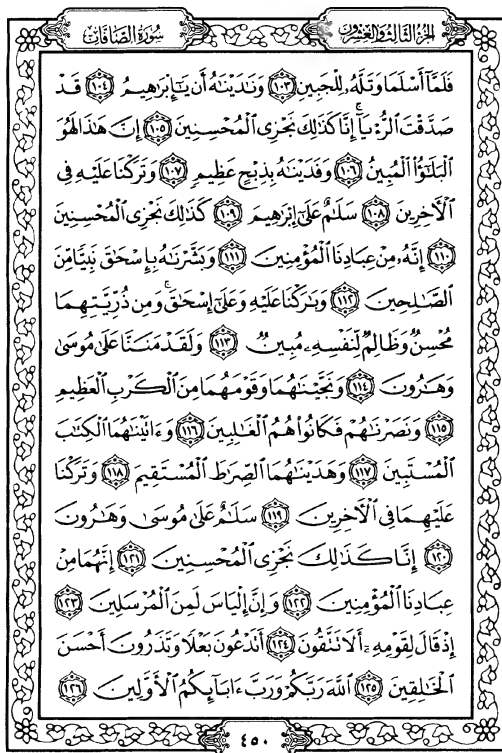 سُورَةُ الصَّافَّاتِ
الجُزْءُ الثَّالِثُ وَالعِشْرُونَ
فَلَمَّآ أَسْلَمَا وَتَلَّهُۥ لِلْجَبِينِ ﴿١٠٣﴾ وَنَٰدَيْنَٰهُ أَن يَٰٓإِبْرَٰهِيمُ ﴿١٠٤﴾ قَدْ
صَدَّقْتَ الرُّءْيَآ ۚ إِنَّا كَذَٰلِكَ نَجْزِى الْمُحْسِنِينَ ﴿١٠٥﴾ إِنَّ هَٰذَا لَهُوَ
الْبَلَٰٓؤُا الْمُبِينُ ﴿١٠٦﴾ وَفَدَيْنَٰهُ بِذِبْحٍ عَظِيمٍ ﴿١٠٧﴾ وَتَرَكْنَا عَلَيْهِ فِى
الْءَاخِرِينَ ﴿١٠٨﴾ سَلَٰمٌ عَلَىٰٓ إِبْرَٰهِيمَ ﴿١٠٩﴾ كَذَٰلِكَ نَجْزِى الْمُحْسِنِينَ
﴿١١٠﴾ إِنَّهُۥ مِنْ عِبَادِنَا الْمُؤْمِنِينَ ﴿١١١﴾ وَبَشَّرْنَٰهُ بِإِسْحَٰقَ نَبِيًّا مِّنَ
الصَّٰلِحِينَ ﴿١١٢﴾ وَبَٰرَكْنَا عَلَيْهِ وَعَلَىٰٓ إِسْحَٰقَ ۚ وَمِن ذُرِّيَّتِهِمَا
مُحْسِنٌ وَظَالِمٌ لِّنَفْسِهِۦ مُبِينٌ ﴿١١٣﴾ وَلَقَدْ مَنَنَّا عَلَىٰ مُوسَىٰ
وَهَٰرُونَ ﴿١١٤﴾ وَنَجَّيْنَٰهُمَا وَقَوْمَهُمَا مِنَ الْكَرْبِ الْعَظِيمِ
﴿١١٥﴾ وَنَصَرْنَٰهُمْ فَكَانُوا هُمُ الْغَٰلِبِينَ ﴿١١٦﴾ وَءَاتَيْنَٰهُمَا الْكِتَٰبَ
الْمُسْتَبِينَ ﴿١١٧﴾ وَهَدَيْنَٰهُمَا الصِّرَٰطَ الْمُسْتَقِيمَ ﴿١١٨﴾ وَتَرَكْنَا
عَلَيْهِمَا فِى الْءَاخِرِينَ ﴿١١٩﴾ سَلَٰمٌ عَلَىٰ مُوسَىٰ وَهَٰرُونَ
﴿١٢٠﴾ إِنَّا كَذَٰلِكَ نَجْزِى الْمُحْسِنِينَ ﴿١٢١﴾ إِنَّهُمَا مِنْ
عِبَادِنَا الْمُؤْمِنِينَ ﴿١٢٢﴾ وَإِنَّ إِلْيَاسَ لَمِنَ الْمُرْسَلِينَ ﴿١٢٣﴾
إِذْ قَالَ لِقَوْمِهِۦٓ أَلَا تَتَّقُونَ ﴿١٢٤﴾ أَتَدْعُونَ بَعْلًا وَتَذَرُونَ أَحْسَنَ
الْخَٰلِقِينَ ﴿١٢٥﴾ اللَّهَ رَبَّكُمْ وَرَبَّ ءَابَآئِكُمُ الْأَوَّلِينَ ﴿١٢٦﴾
٤٥٠